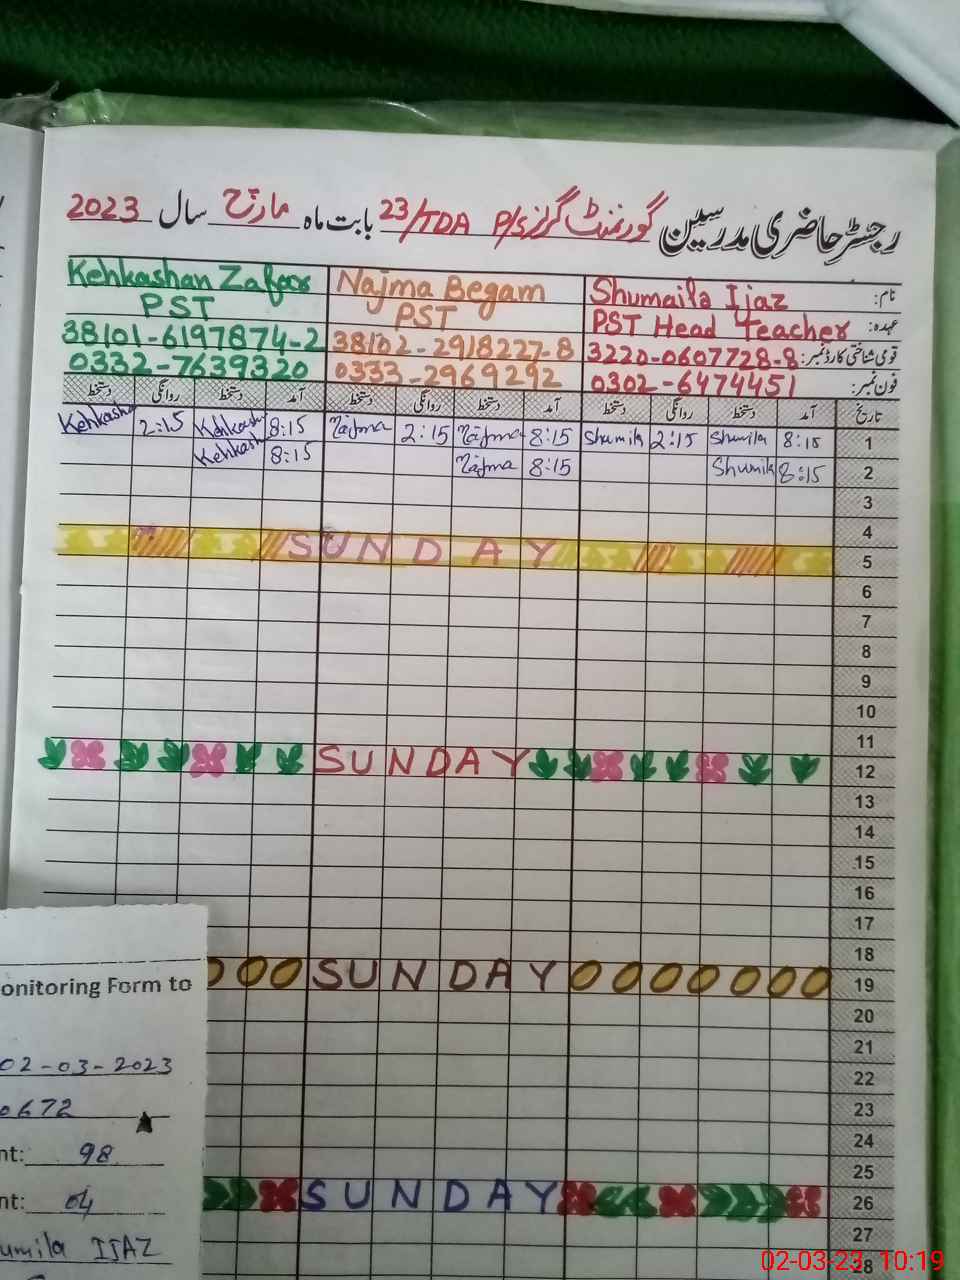 رجسٹر حاضری مدرسین گورنمنٹ گرلز P/S 23/TDA بابت ماہ مارچ سال 2023
نام: Shumaila Ijaz Najma Begam Kehkashan Zafar
عہدہ: PST Head Teacher PST PST
قومی شناختی کارڈ نمبر: 3220-0607728-8 38102-2918227-8 38101-6197874-2
فون نمبر: 0302-6474451 0333-2969292 0332-7639320
تاریخ آمد دستخط روانگی دستخط آمد دستخط روانگی دستخط آمد دستخط روانگی دستخط
1 8:15 Shumila 2:15 Shumila 8:15 Najma 2:15 Najma 8:15 Kehkasha 2:15 Kehkasha
2 8:15 Shumila 8:15 Najma 8:15 Kehkash
3
4
5 SUNDAY
6
7
8
9
10
11
12 SUNDAY
13
14
15
16
17
18
19 SUNDAY
20
21
22
23
24
25
26 SUNDAY
27
28
onitoring Form to
02-03-2023
0672
nt: 98
nt: 04
umila IJAZ
02-03-23 10:19